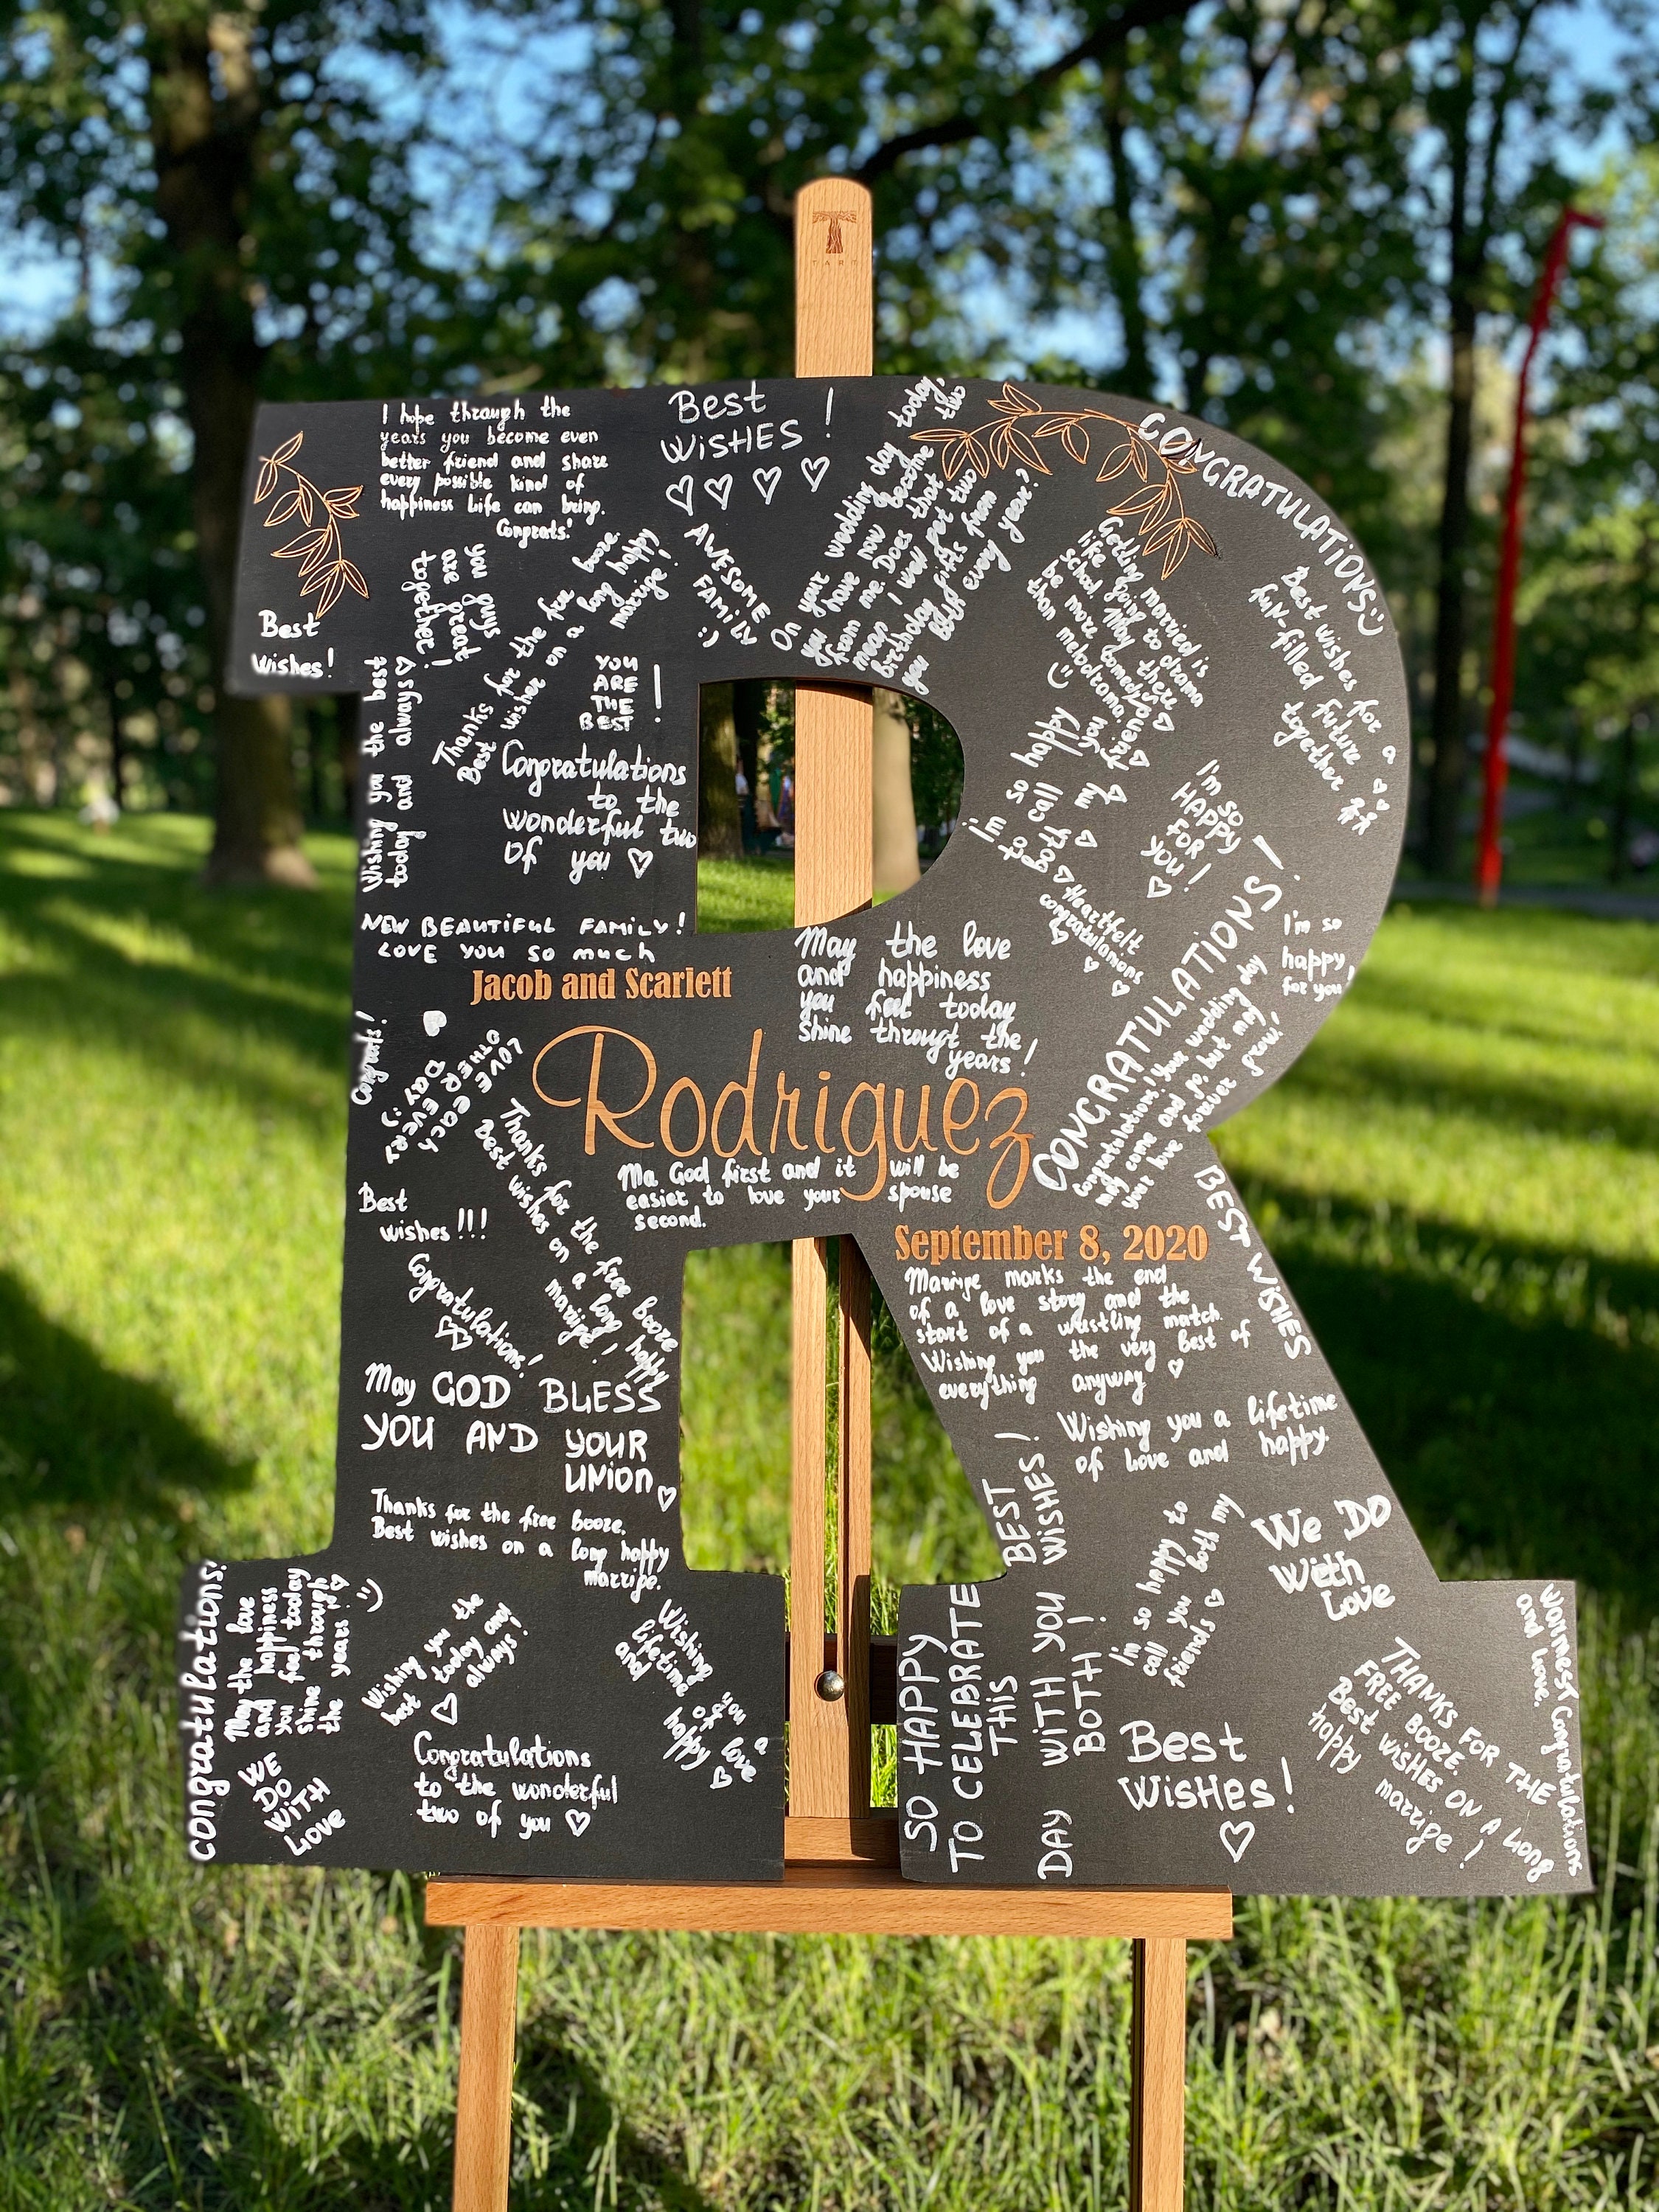 TART
I hope through the
years you become even
better friend and share
every possible kind of
happiness life can bring.
Congrats!
Best
WISHES !
On your wedding day today,
you have now become the
from me. Does that
mean I won't get two
birthday gifts from
you both every year?
CONGRATULATIONS :)
Best
wishes!
you guys
are great
together!
Thanks for the free booze.
Best wishes on a long happy
marrige!
AWESOME
FAMILY
:)
YOU
ARE
THE
BEST !
Getting married is
like going to drama
school. May there
be more comedies
than melodrama,
:)
Best wishes for a
fun-filled future
together
Wishing you the best
today and always
Congratulations
to the
wonderful two
of you
I'm so happy
to call you
both my friends
I'm so
HAPPY
FOR
YOU!
Heartfelt
congratulations
NEW BEAUTIFUL FAMILY!
LOVE YOU SO MUCH
Jacob and Scarlett
May the love
and happiness
you feel today
shine througt the
years!
I'm so
happy
for you!
CONGRATULATIONS!
Congratulations! Your wedding day
may come and go, but my
your love forever grow!
Congrats!
LOVE EACH
OTHER
EVERY
DAY :)
Rodriguez
Ma God first and it will be
easier to love your spouse
second.
Thanks for the free booze
Best wishes on a long happy
marrige!
Best
wishes!!!
September 8, 2020
BEST WISHES
Congratulations!
Marrige marks the end
of a love story and the
start of a wrestling match.
Wishing you the very best of
everything anyway
May GOD BLESS
YOU AND YOUR
UNION
Wishing you a lifetime
of love and happy
BEST
WISHES!
Thanks for the free booze.
Best wishes on a long happy
marrige.
:)
I'm so happy to
call you both my
friends
We DO
With
Love
Congratulations!
May the love
and happiness
you feel today
shine through
the years!
Wishing you the
best today and
always!
Wishing you a
lifetime of love
and happy
SO HAPPY
TO CELEBRATE
THIS
DAY WITH YOU
BOTH!
Warmest Congratulations
and Love.
THANKS FOR THE
FREE BOOZE.
Best wishes ON A Long
happy marrige!
WE
DO
WITH
Love
Congratulations
to the wonderful
two of you
Best
WisHes!